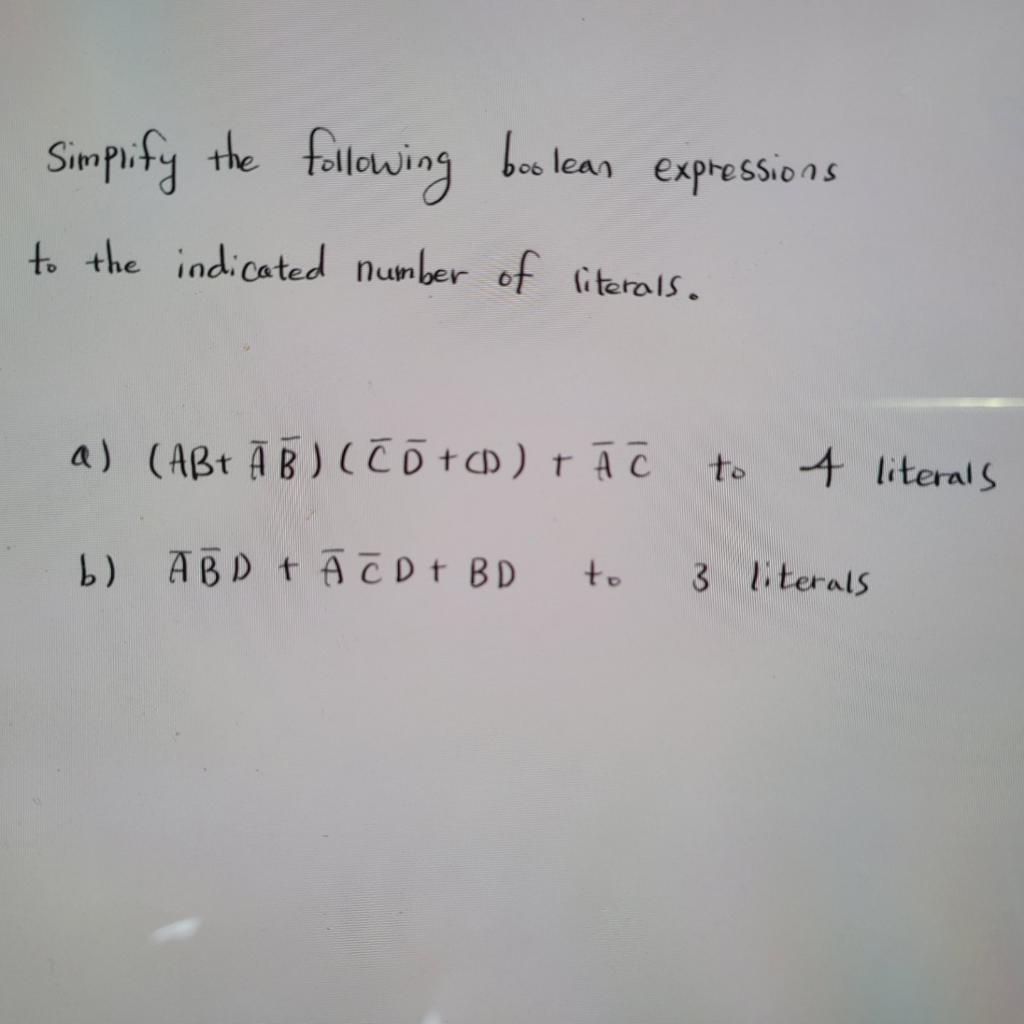 Simplify the following boolean expressions
to the indicated number of literals.
a) (AB+ A̅ B̅) (C̅ D̅ + CD) + A̅ C̅ to 4 literals
b) A̅ B̅ D + A̅ C̅ D + BD to 3 literals